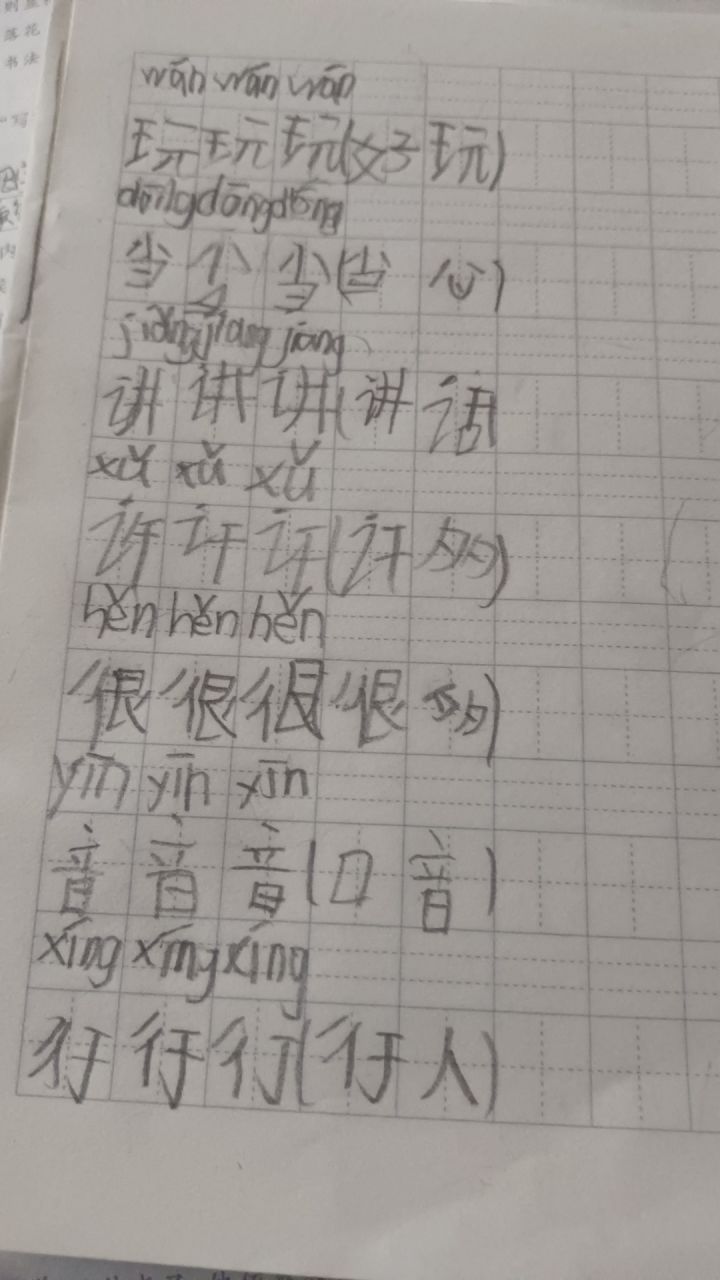 wán wán wán
玩玩玩(好玩)
dāng dāng dāng
当当当(当心)
jiǎng jiang jiang
讲讲讲(讲话
xǔ xǔ xǔ
许许许(许多)
hěn hěn hěn
很很很(很多)
yīn yīn yīn
音音音(口音)
xíng xíng xíng
行行行(行人)